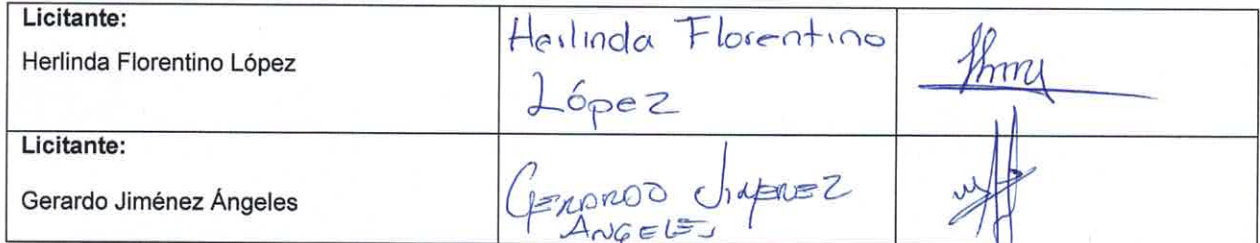 Licitante:
Herlinda Florentino López
Herlinda Florentino
López
Licitante:
Gerardo Jiménez Ángeles
GERARDO JIMENEZ
ANGELES